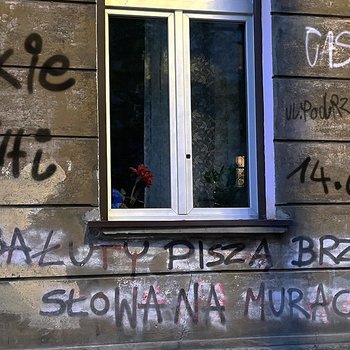 kie
GAS
ul. Podrz
14.
BAŁUTY PISZĄ BRZ
SŁOWA NA MURAC